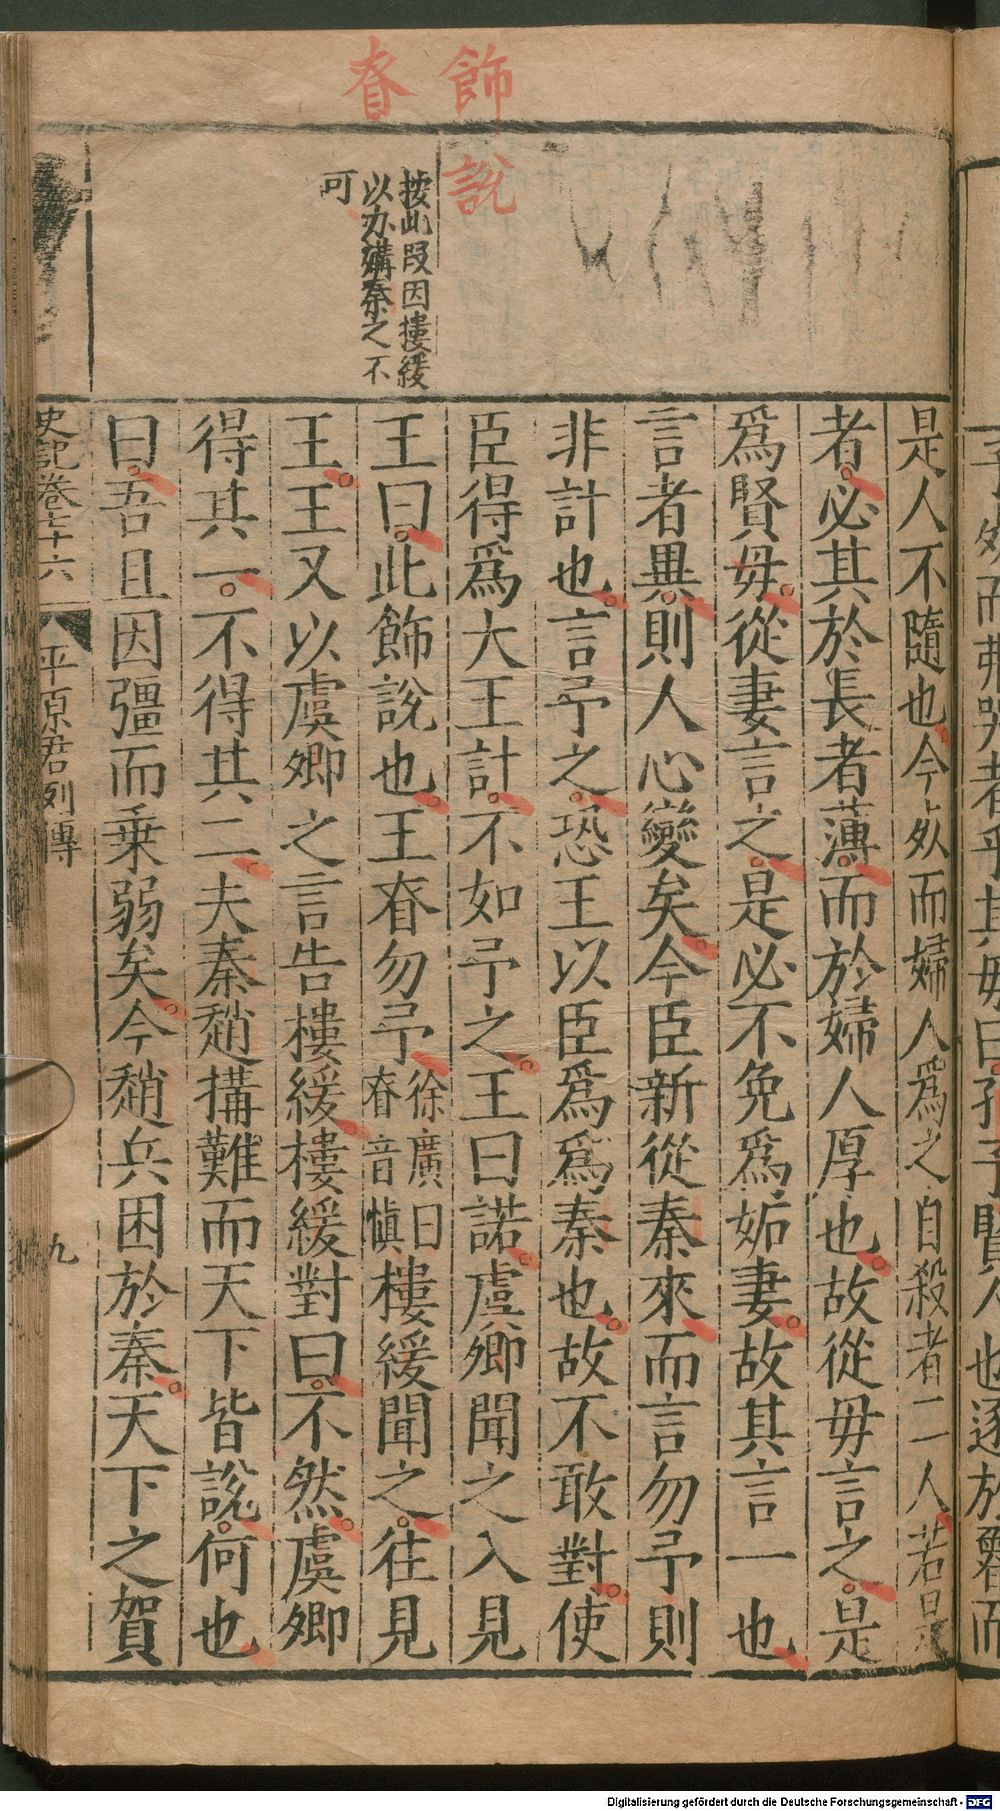 飾說
眘
按此段因摟緩
以办媾秦之不
可
是人不隨也今死而婦人爲之自殺者二人若是
者必其於長者薄而於婦人厚也故從毋言之是
爲賢毋從妻言之是必不免爲妬妻故其言一也
言者異則人心變矣今臣新從秦來而言勿予則
非計也言予之恐王以臣爲爲秦也故不敢對使
臣得爲大王計不如予之王曰諾虞卿聞之入見
王曰此飾說也王眘勿予徐廣曰眘音愼樓緩聞之往見
王王又以虞卿之言告樓緩樓緩對曰不然虞卿
得其一不得其二夫秦趙搆難而天下皆說何也
曰吾且因彊而乗弱矣今趙兵困於秦天下之賀
史記卷七十六
平原君列傳
九
Digitalisierung gefördert durch die Deutsche Forschungsgemeinschaft - DFG